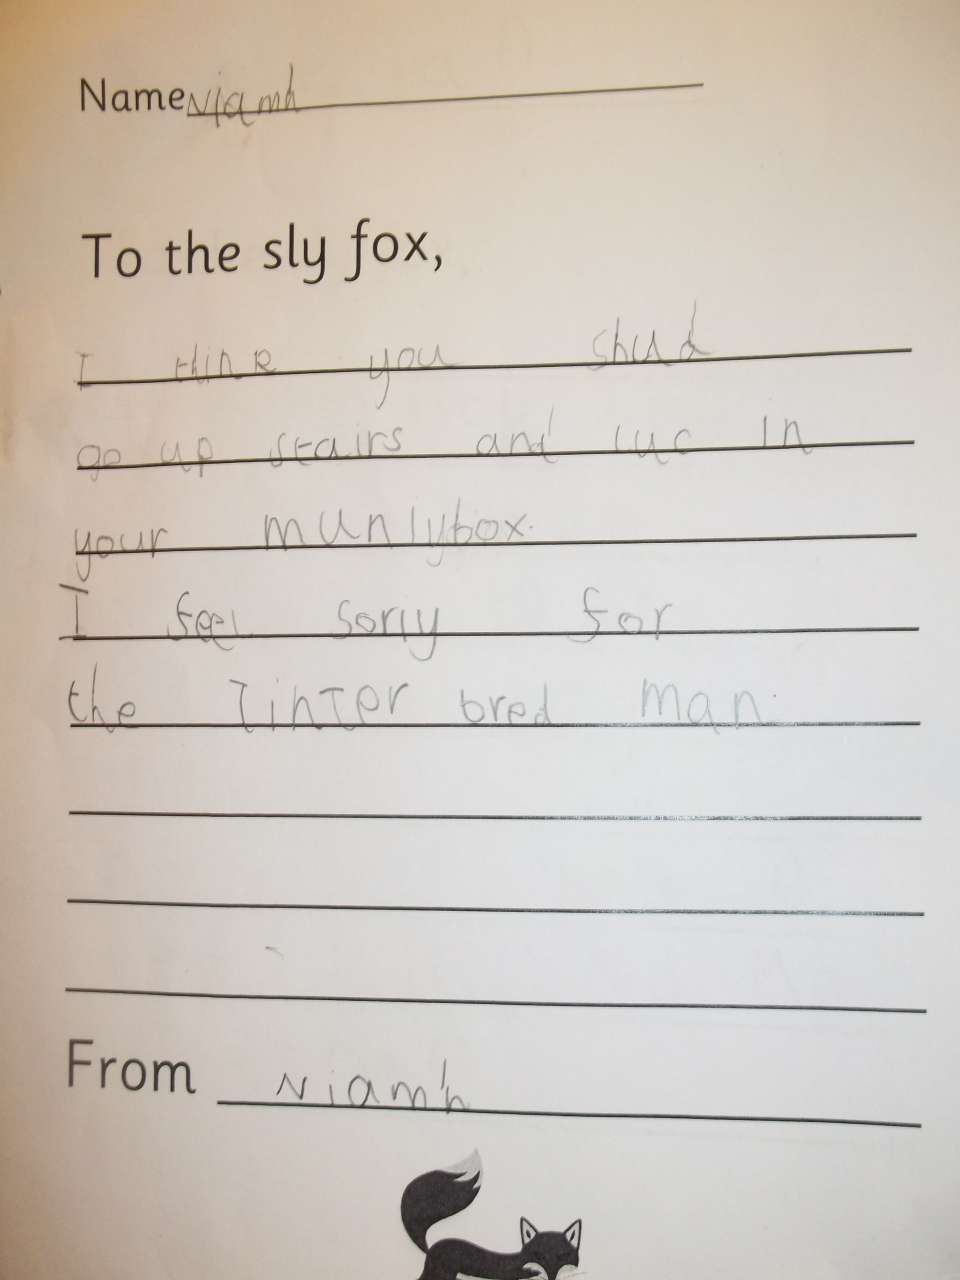 Name Niamh
To the sly fox,
I think you shud
go up stairs and luc in
your munlybox.
I feel sorry for
the Tinter bred man.
From Niamh